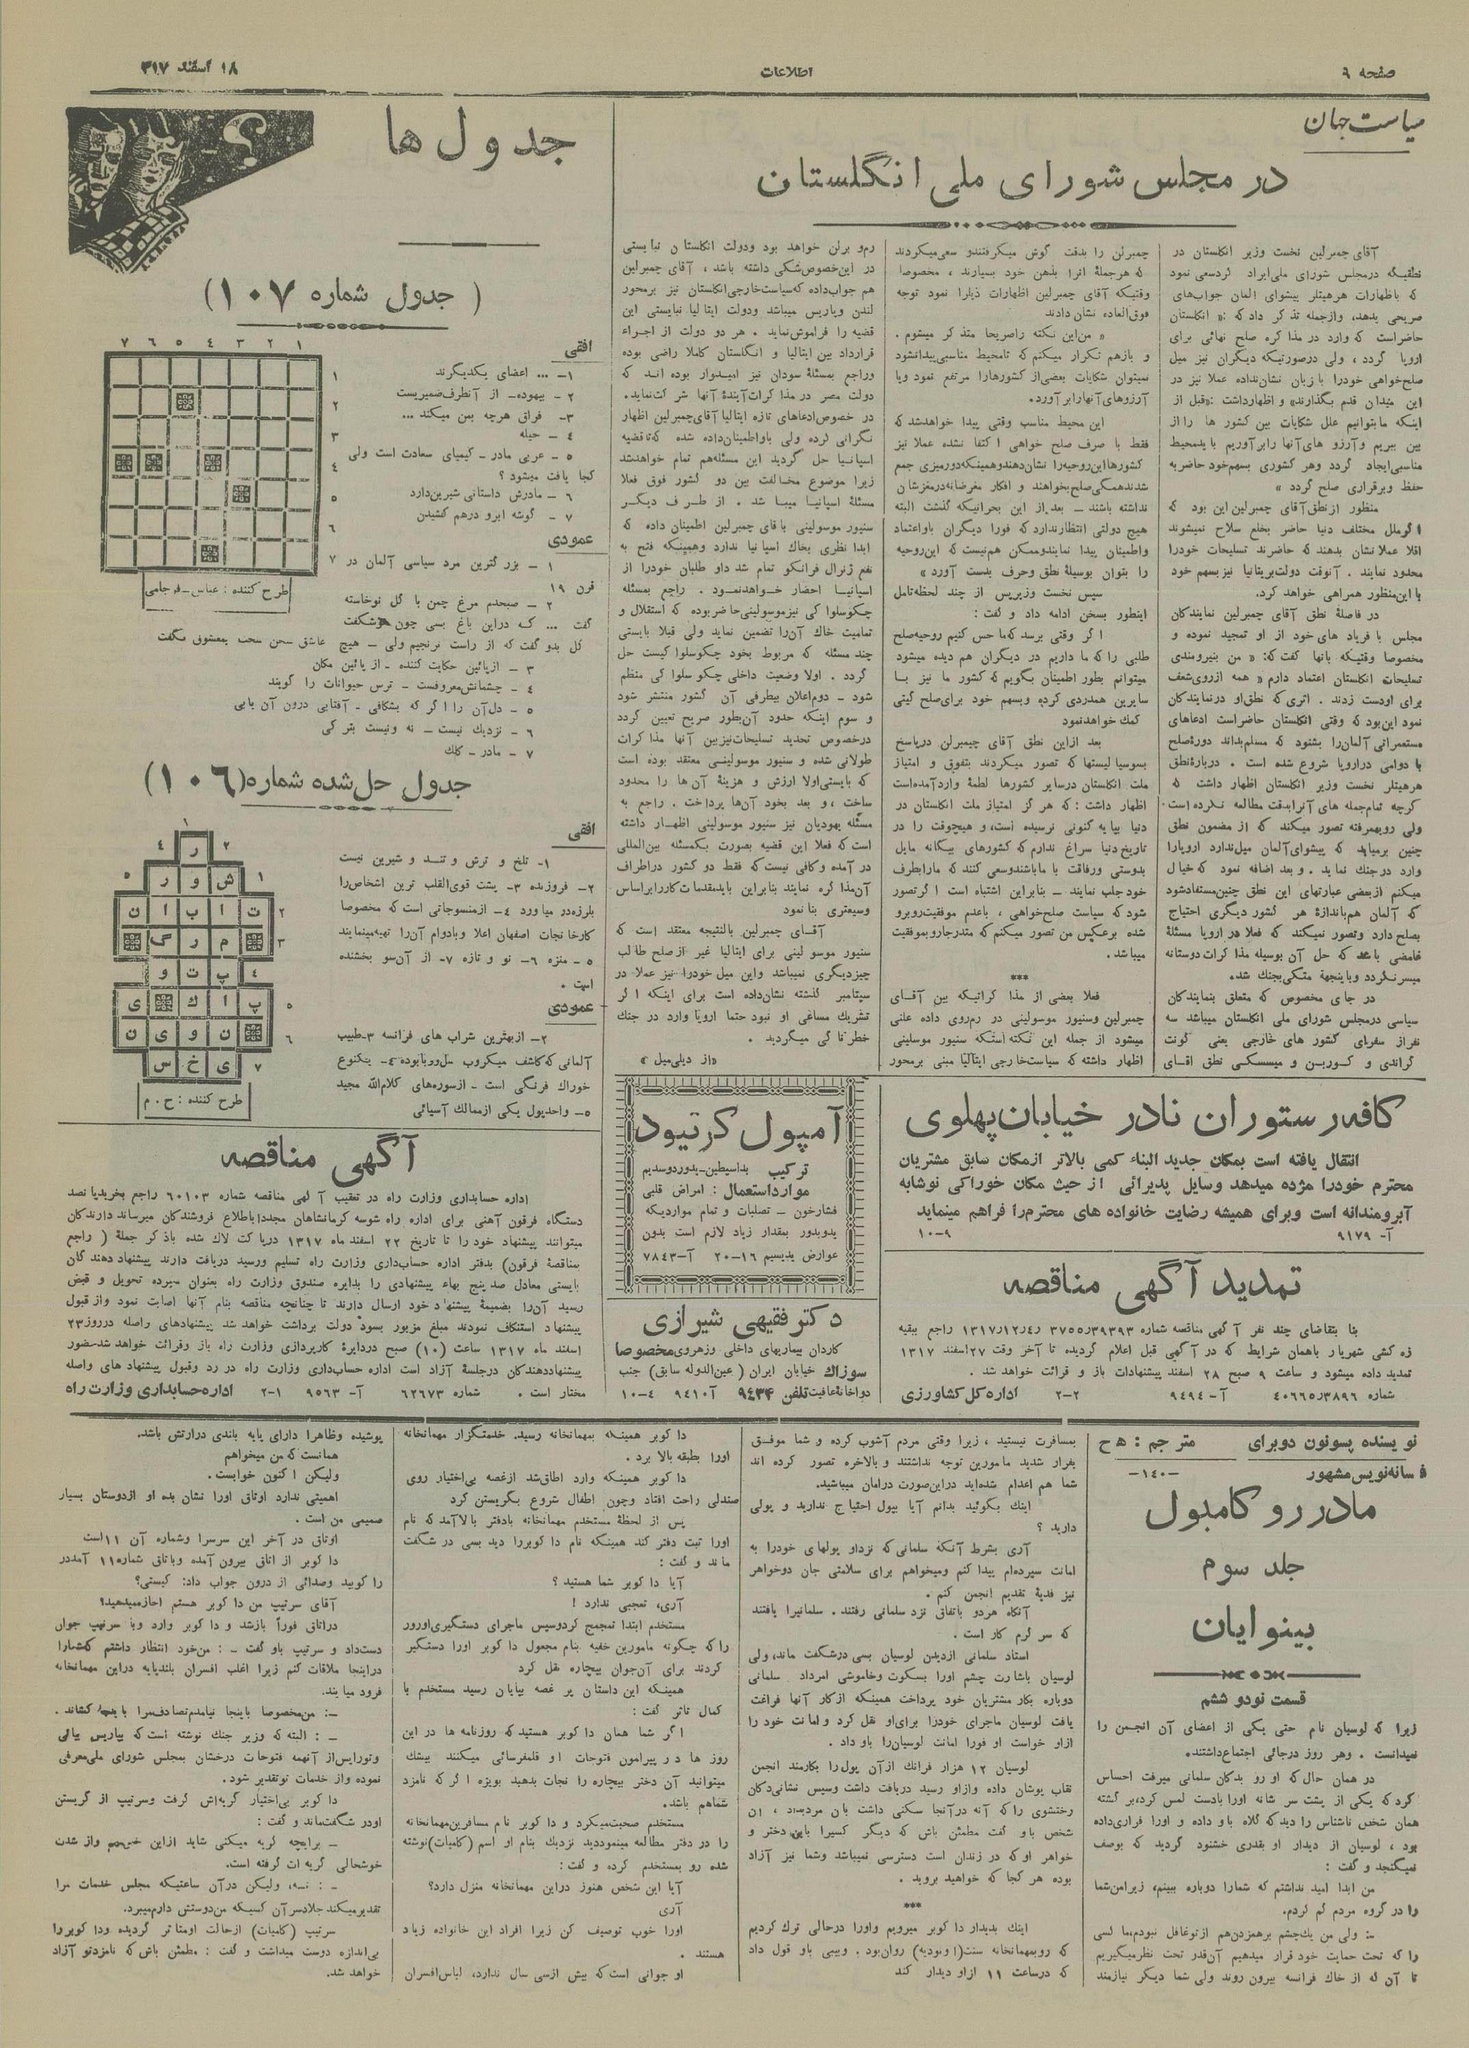 صفحه ۹
اطلاعات
۱۸ اسفند ۳۱۷
سیاست جهان
در مجلس شورای ملی انگلستان
آقای چمبرلین نخست وزیر انگلستان در
نطقیکه درمجلس شورای ملی ایراد کرد سعی نمود
که باظهارات هرهیتلر پیشوای المان جوابهای
صریحی بدهد، وازجمله تذکر داد که :« انگلستان
حاضراست که وارد در مذاکره صلح نهائی برای
اروپا گردد ، ولی درصورتیکه دیگران نیز میل
صلح‌خواهی خودرا با زبان نشان‌نداده عملا نیز در
این میدان قدم بگذارند» و اظهارداشت :«قبل از
اینکه مابتوانیم علل شکایات بین کشور ها را از
بین ببریم و آرزو های آنها رابرآوریم بایدمحیط
مناسبی‌ایجاد گردد وهر کشوری بسهم‌خود حاضر به
حفظ وبرقراری صلح گردد »
منظور ازنطق‌آقای چمبرلین‌این بود که
اگرملل مختلف دنیا حاضر بخلع سلاح نمیشوند
اقلا عملانشان بدهند که حاضرند تسلیحات خودرا
محدود نمایند . آنوقت دولت‌بریتانیا نیز بسهم خود
با این‌منظور همراهی خواهد کرد.
در فاصلهٔ نطق آقای چمبرلین نمایندگان
مجلس با فریاد های خود از او تمجید نموده و
مخصوصا وقتیکه بانها گفت‌که: « من بنیرومندی
تسلیحات انگلستان اعتماد دارم » همه ازروی‌شعف
برای اودست زدند . اثری‌که نطق‌او درنمایندگان
نمود این‌بود که وقتی انگلستان حاضراست ادعاهای
مستعمراتی آلمان‌را بشنود که مسلم‌بداند دورهٔ‌صلح
با دوامی دراروپا شروع شده است . دربارهٔ‌نطق
هرهیتلر نخست وزیر انگلستان اظهار داشت که
گرچه تمام‌جمله های آنرابدقت مطالعه نکرده‌است
ولی رویهمرفته تصور میکند که از مضمون نطق
چنین برمیاید که پیشوای‌آلمان میل‌ندارد اروپارا
وارد درجنك نماید . وبعد اضافه نمود که خیال
میکنم ازبعضی عبارتهای این نطق چنین‌مستفادشود
که آلمان هم‌باندازهٔ هر کشور دیگری احتیاج
بصلح دارد وتصور نمیکند که فعلا در اروپا مسئلهٔ
غامضی باشد که حل آن بوسیله مذاکرات دوستانه
میسرنگردد وباینجهة متکی‌بجنك شد.
در جای مخصوص که متعلق بنمایندگان
سیاسی درمجلس شورای ملی انگلستان میباشد سه
نفراز سفرای کشور های خارجی یعنی کونت
گراندی و کوربن و میسسکی نطق اقای
چمبرلن را بدقت گوش میکرفتندو سعی‌میکردند
که هرجملهٔ انرا بذهن خود بسپارند ، مخصوصا
وقتیکه آقای چمبرلین اظهارات ذیلرا نمود توجه
فوق‌العاده نشان دادند
« من‌این نکته راصریحا متذکر میشوم .
و بازهم تکرار میکنم که تامحیط مناسبی‌پیدانشود
نمیتوان شکایات بعضی‌از کشورهارا مرتفع نمود ویا
آرزوهای آنهارابرآورد.
این محیط مناسب وقتی پیدا خواهدشدکه
فقط با صرف صلح خواهی اکتفا نشده عملا نیز
کشورهااین‌روحیه‌را نشان‌دهندوهمینکه‌دورمیزی جمع
شدندهمگی‌صلح‌بخواهند و افکار مغرضانه‌درمغزشان
نداشته باشند – بعد از این بحرانیکه گذشت البته
هیچ دولتی انتظارندارد که فورا دیگران باواعتماد
واطمینان پیدا نمایندوممکن هم‌نیست که این‌روحیه
را بتوان بوسیلهٔ نطق وحرف بدست آورد »
سپس نخست وزیرپس از چند لحظه‌تامل
اینطور بسخن ادامه داد و گفت :
اگر وقتی برسد که‌ما حس کنیم روحیه‌صلح
طلبی را که ما داریم در دیگران هم دیده میشود
میتوانم بطور اطمینان بگویم که کشور ما نیز بـا
سایرین همدردی کرده وبسهم خود برای‌صلح گیتی
کمك خواهدنمود
بعد ازاین نطق آقای چمبرلن درپاسخ
بسوسیالیستها که تصور میکردند بتفوق و امتیاز
ملت انگلستان درسایر کشورها لطمهٔ واردآمده‌است
اظهار داشت : که هرگز امتیاز ملت انگلستان در
دنیا بپایه کنونی نرسیده است، و هیچوقت را در
تاریخ‌دنیا سراغ ندارم که کشورهای بیگانه مایل
بدوستی ورفاقت با ماباشندوسعی کنند که مارابطرف
خودجلب نمایند – بنابراین اشتباه است اگرتصور
شودکه سیاست صلح‌خواهی ، باعدم موفقیت‌روبرو
شده برعکس‌من تصور میکنم‌که متدرجاروبموفقیت
میباشد.
***
فعلا بعضی از مذاکراتیکه بین آقـای
چمبرلن وسنیور موسولینی در رم‌روی داده علنی
میشود از جمله این نکته استکه سنیور موسلینی
اظهار داشته که سیاست‌خارجی ایتالیا مبنی برمحور
رم‌و برلن خواهد بود ودولت انکلستان نبایستی
در این‌خصوص‌شکی داشته باشد ، آقای چمبرلین
هم جواب‌داده که‌سیاست‌خارجی‌انکلستان نیز برمحور
لندن وپاریس میباشد ودولت ایتالیا نبایستی این
قضیه را فراموش‌نماید . هر دو دولت از اجراء
قرارداد بین ایتالیا و انگلستان کاملا راضی بوده
وراجع بمسئلهٔ سودان نیز امیدوار بوده اند که
دولت مصر در مذاکرات‌آیندهٔ آنها شرکت‌نماید.
در خصوص‌ادعاهای تازه ایتالیا آقای‌چمبرلین اظهار
نگرانی کرده ولی باواطمینان‌داده شده که‌تاقضیه
اسپانیا حل گردید این مسئله‌هم تمام خواهدشد
زیرا موضوع مخالفت بین دو کشور فوق فعلا
مسئلهٔ اسپانیا میباشد . از طرف دیگر
سنیور موسولینی باقای چمبرلین اطمینان داده که
ابدا نظری بخاك اسپانیا ندارد وهمینکه فتح به
نفع ژنرال فرانکو تمام شد داوطلبان خودرا از
اسپانیا احضار خواهدنمود . راجع بمسئله
چکوسلواکی نیزموسولینی‌حاضربوده که استقلال و
تمامیت خاك آن‌را تضمین نماید ولی قبلا بایستی
چند مسئله که مربوط بخود چکوسلواکیست حل
گردد . اولا وضعیت داخلی چکوسلواکی منظم
شود – دوم‌اعلان بیطرفی آن کشور منتشر شود
و سوم اینکه حدود آن‌بطور صریح تعیین گردد
درخصوص تحدید تسلیحات‌نیز بین آنها مذاکرات
طولانی شده و سنیور موسولینی معتقد بوده است
که بایستی‌اولا ارزش و هزینهٔ آن ها را محدود
ساخت ، و بعد بخود آن‌ها پرداخت . راجع به
مسئله یهودیان نیز سنیور موسولینی اظهار داشته
است که فعلا این قضیه بصورت یکمسئله بین‌المللی
در آمده وکافی نیست‌که فقط دو کشور دراطراف
آن‌مذاکره نمایند بنابراین بایدمقدمات کاررابراساس
وسیعتری بنا نمود
آقـای چمبرلین بالنتیجه معتقد است که
سنیور موسولینی برای ایتالیا غیر ازصلح طالب
چیزدیگری نمیباشد واین میل خودرا نیز عملا در
سپتامبر گذشته نشان‌داده است برای اینکه اگر
تشریك مساعی او نبود حتما اروپا وارد در جنك
خطرناکی میگردید .
«از دیلی‌میل »
جدول ها
( جدول شماره ۱۰۷)
۱ ۲ ۳ ۴ ۵ ۶ ۷
۱
۲
۳
۴
۵
۶
۷
طرح کننده : عباس–فرجامی
افقی
۱– ... اعضای یکدیگرند
۲ – بیهوده– از آنطرف‌ضمیریست
۳– فراق هرچه بمن میکند ...
۴ – حیله
۵ – عربی مادر – کیمیای سعادت است ولی
کجا یافت میشود ؟
۶ – مادرش داستانی شیرین‌دارد
۷ – گوشه ابرو درهم کشیدن
عمودی
۱ – بزرگترین مرد سیاسی آلمان در
قرن ۱۹
۲ – صبحدم مرغ چمن با گل نوخاسته
گفت ... که دراین باغ بسی چون تو شکفت
گل بدو گفت که از راست نرنجیم ولی – هیچ عاشق سخن سخت بمعشوق نگفت
۳ – ازپائین حکایت کننده – از پائین مکان
۴ – چشمانش‌معروفست – ترس حیوانات را گویند
۵ – دل‌آن را اگر که بشکافی – آفتابی درون آن یابی
۶ – نزدیك نیست – نه ونیست بترکی
۷ – مادر – كلك
جدول حل‌شده شماره (۱۰۶)
۱
۴ ر ۲
۵ ر و ش ۱
ن ا ب ا ت ۲
گ ر م ۳
و ت پ ۴
ی ك ا پ ۵
ن ی و ن ۶
س خ ی ۷
طرح کننده : ح . م
افقی
۱– تلخ و ترش و تنـد و شیرین نیست
۲– فروزنده ۳– پشت قوی‌القلب ترین اشخاص‌را
بلرزه‌درمیاورد ۴– ازمنسوجاتی است که مخصوصا
کارخانجات اصفهان اعلا وبادوام آن‌را تهیه‌مینمایند
۵ – منزه ۶– نو و تازه ۷– از آن‌سو بخشنده
است .
عمودی
۲– ازبهترین شراب های فرانسه ۳–طبیب
آلمانی که‌کاشف میکروب سل‌ووبابوده ۴– یکنوع
خوراك فرنگی است – ازسوره‌های کلام‌الله مجید
۵– واحدپول یکی ازممالك آسیائی
کافه رستوران نادر خیابان پهلوی
انتقال یافته است بمکان جدید البناء کمی بالاتر ازمکان سابق مشتریان
محترم خودرا مژده میدهد وسایل پذیرائی از حیث مکان خوراکی نوشابه
آبرومندانه است وبرای همیشه رضایت خانواده های محترم‌را فراهم مینماید
آ– ۹۱۷۹
۹–۱۰
تمدید آگهی مناقصه
بنا بتقاضای چند نفر آگهی مناقصه شماره ۳۷۵۵ر۳۹۳۹۳ ۱۳۱۷ر۱۲ر۴ راجع ببقیه
زه کشی شهریار باهمان شرایط که در آگهی قبل اعلام گردیده تا آخر وقت ۲۷اسفند ۱۳۱۷
تمدید داده میشود و ساعت ۹ صبح ۲۸ اسفند پیشنهادات باز و قرائت خواهد شد.
شماره ۴۰۶۶۵ر۳۸۹۶ آ–۹۴۹۴ ۲–۲ اداره کل کشاورزی
آمپول کرتیود
ترکیب بداسیطین–یدوردوسدیم
موارداستعمال : امراض قلبی
فشارخون – تصلبات و تمام مواردیکه
یدوبدور بمقدار زیاد لازم است بدون
عوارض یدیسیم ۱۶–۲۰ آ–۷۸۴۳
دکتر فقیهی شیرازی
کاردان بیماریهای داخلی وزهروی مخصوصا
سوزاك خیابان ایران ( عین‌الدوله سابق) جنب
دواخانهٔ عافیت تلفن ۹۴۳۴ آ–۹۴۱۰ ۴–۱۰
آگهی مناقصه
اداره حسابداری وزارت راه در تعقیب آگهی مناقصه شماره ۶۰۱۰۳ راجع بخریدپانصد
دستگاه فرقون آهنی برای اداره راه شوسه کرمانشاهان مجددا باطلاع فروشندکان میرساند دارندکان
میتوانند پیشنهاد خود را تا تاریخ ۲۲ اسفند ماه ۱۳۱۷ درپاکت لاك شده باذکر جملهٔ ( راجع
بمناقصهٔ فرقون) بدفتر اداره حسابداری وزارت راه تسلیم ورسید دریافت دارند پیشنهاد دهندگان
بایستی معادل صدپنج بهاء پیشنهادی را بدایره صندوق وزارت راه بعنوان سپرده تحویل و قبض
رسید آن‌را بضمیمهٔ پیشنهاد خود ارسال دارند تا چنانچه مناقصه بنام آنها اصابت نمود واز قبول
پیشنهاد استنکاف نمودند مبلغ مزبور بسود دولت برداشت خواهد شد پیشنهادهای واصله درروز۲۳
اسفند ماه ۱۳۱۷ ساعت (۱۰) صبح دردایرهٔ کارپردازی وزارت راه باز وقرائت خواهد شد–حضور
پیشنهاددهندکان درجلسهٔ آزاد است اداره حسابداری وزارت راه در رد وقبول پیشنهاد های واصله
مختار است . شماره ۶۲۶۷۳ آ– ۹۵۶۳ ۱–۲ اداره حسابداری وزارت راه
نویسنده پسونون دوبرای
مترجم : ه ح
فسانه‌نویس مشهور
–۱۴۰–
مادر روکامبول
جلد سوم
بینوایان
قسمت نودو ششم
زیرا که لوسیان نام حتی یکی از اعضای آن انجمن را
نمیدانست . وهر روز درجائی اجتماع‌داشتند.
در همان حال‌که او رو بدکان سلمانی میرفت احساس
کردکه یکی از پشت سر شانه اورا بادست لمس کرد، برگشته
همان شخص ناشناس را دیدکه کلاه باو داده و اورا فراری‌داده
بود ، لوسیان از دیدار او بقدری خشنود گردید که بوصف
نمیگنجد و گفت :
من ابدا امید نداشتم که شمارا دوباره ببینم، زیرامن‌شما
را در گروه مردم گم کردم.
–: ولی من یك‌چشم برهم‌زدن‌هم ازتوغافل نبودم‌ما کسی
را که تحت حمایت خود قرار میدهیم آن‌قدر تحت نظرمیگیریم
تا آن که از خاك فرانسه بیرون روند ولی شما دیگر نیازمند
بمسافرت نیستید ، زیرا وقتی مردم آشوب کرده و شما موفـق
بفرار شدید مامورین توجه نداشتند وبالاخره تصور کرده اند
شما هم اعدام شده‌اید دراین‌صورت درامان میباشید.
اینك بگوئید بدانم آیا بپول احتیاج ندارید و پولی
دارید ؟
آری بشرط آنکهٔ سلمانی که نزداو پولهای خودرا به
امانت سپرده‌ام پیدا کنم ومیخواهم برای سلامتی جان دوخواهر
نیز فدیهٔ تقدیم انجمن کنم .
آنگاه هردو باتفاق نزد سلمانی رفتند . سلمانیرا یافتند
که سرگرم کار است .
استاد سلمانی ازدیدن لوسیان بسی درشگفت ماند، ولی
لوسیان باشارت چشم اورا بسکوت وخاموشی امرداد . سلمانی
دوباره بکار مشتریان خود پرداخت همینکه ازکار آنها فراغت
یافت لوسیان ماجرای خودرا برای‌او نقل کرد و امانت خود را
ازاو خواست او فورا امانت لوسیان‌را باو داد .
لوسیان ۱۲ هزار فرانك ازآن پول‌را بکارمند انجمن
نقاب پوشان داده وازاو رسید دریافت داشت وسپس نشانی‌دکان
رختشوی راکه آنه درآنجا سکنی داشت بان مردداد ، آن
شخص باو گفت مطمئن باش که دیگر کسیرا باین دختر و
خواهر اوکه در زندان است دسترسی نمیباشد وشما نیز آزاد
بوده هرکجا که خواهید بروید .
***
اینك بدیدار داکوبر میرویم واورا درحالی ترك کردیم
که روبمهمانخانه سنت(اونوده) روان‌بود . وبیبی باو قول داد
که درساعت ۱۱ ازاو دیدار کند
داکوبر همینکه بمهمانخانه رسید. خدمتگزار مهمانخانه
اورا بطبقه بالا برد .
داکوبر همینکه وارد اطاق‌شد ازغصه بی‌اختیار روی
صندلی راحت افتاد وچون اطفال شروع بگریستن کرد
پس از لحظهٔ مستخدم مهمانخانه بادفتر بالا آمد که نام
اورا ثبت دفتر کند همینکه نام داکوبررا دید بسی در شگفت
ماند و گفت :
آیا داکوبر شما هستید ؟
آری، تعجبی ندارد !
مستخدم ابتدا تمجمج کردوسپس ماجرای دستگیری‌اورور
راکه چگونه مامورین خفیه بنام مجعول داکوبر اورا دستگیر
کردند برای آن‌جوان بیچاره نقل کرد
همینکه این داستان پر غصه بپایان رسید مستخدم با
کمال تاثر گفت :
اگر شما همان داکوبر هستیدکه روزنامه ها در این
روز ها در پیرامون فتوحات او قلمفرسائی میکنند بیشك
میتوانید آن دختر بیچاره را نجات بدهید بویژه اگر که نامزد
شماهم باشد.
مستخدم صحبت‌میکرد و داکوبر نام مسافرین‌مهمانخانه
را در دفتر مطالعه مینموددید نزدیك بنام او اسم (کامپات)نوشته
شده رو بمستخدم کرده و گفت :
آیا این شخص هنوز دراین مهمانخانه منزل دارد؟
آری
اورا خوب توصیف کن زیرا افراد این خانواده زیاد
هستند .
او جوانی است‌که بیش ازسی سال ندارد، لباس‌افسران
پوشیده وظاهرا دارای پایه بلندی درارتش باشد.
همانست که من میخواهم
ولیکن اکنون خوابست.
اهمیتی ندارد اوتاق اورا نشان بده او ازدوستان بسیار
صمیمی من است .
اوتاق در آخر این سرسرا وشماره آن ۱۱است
داکوبر از اتاق بیرون آمده وباتاق شماره۱۱ آمددر
را کوبید وصدائی از درون جواب داد: کیستی؟
آقای سرتیپ من داکوبر هستم اجازه‌میدهید؟
دراتاق فوراً بازشد و داکوبر وارد وبا سرتیپ جوان
دست‌داد و سرتیپ باو گفت – : من‌خود انتظار داشتم که‌شمارا
دراینجا ملاقات کنم زیرا اغلب افسران بلندپایه دراین مهمانخانه
فرود میایند.
–: من‌مخصوصا باینجا نیامدم‌تصادف‌مرا باینجا کشاند .
– : البته که وزیر جنك نوشته است که بپاریس بیائی
وتوراپس از آنهمه فتوحات درخشان بمجلس شورای ملی‌معرفی
نموده واز خدمات توتقدیر شود.
داکوبر بی‌اختیار گریه‌اش گرفت وسرتیپ از گریستن
اودر شگفت‌ماند و گفت :
– برایچه گریه میکنی شاید ازاین خبرهم وازشدت
خوشحالی گریه ات گرفته است.
– : نـه، ولیکن درآن ساعتیکه مجلس خدمات مرا
تقدیرمیکند جلادسر آن کسیکه من‌دوستش دارم‌میبرد.
سرتیپ (کامپات) ازحالت اومتاثر گردیده وداکوبررا
بی‌اندازه دوست میداشت و گفت : مطمئن باش که نامزدتو آزاد
خواهد شد.